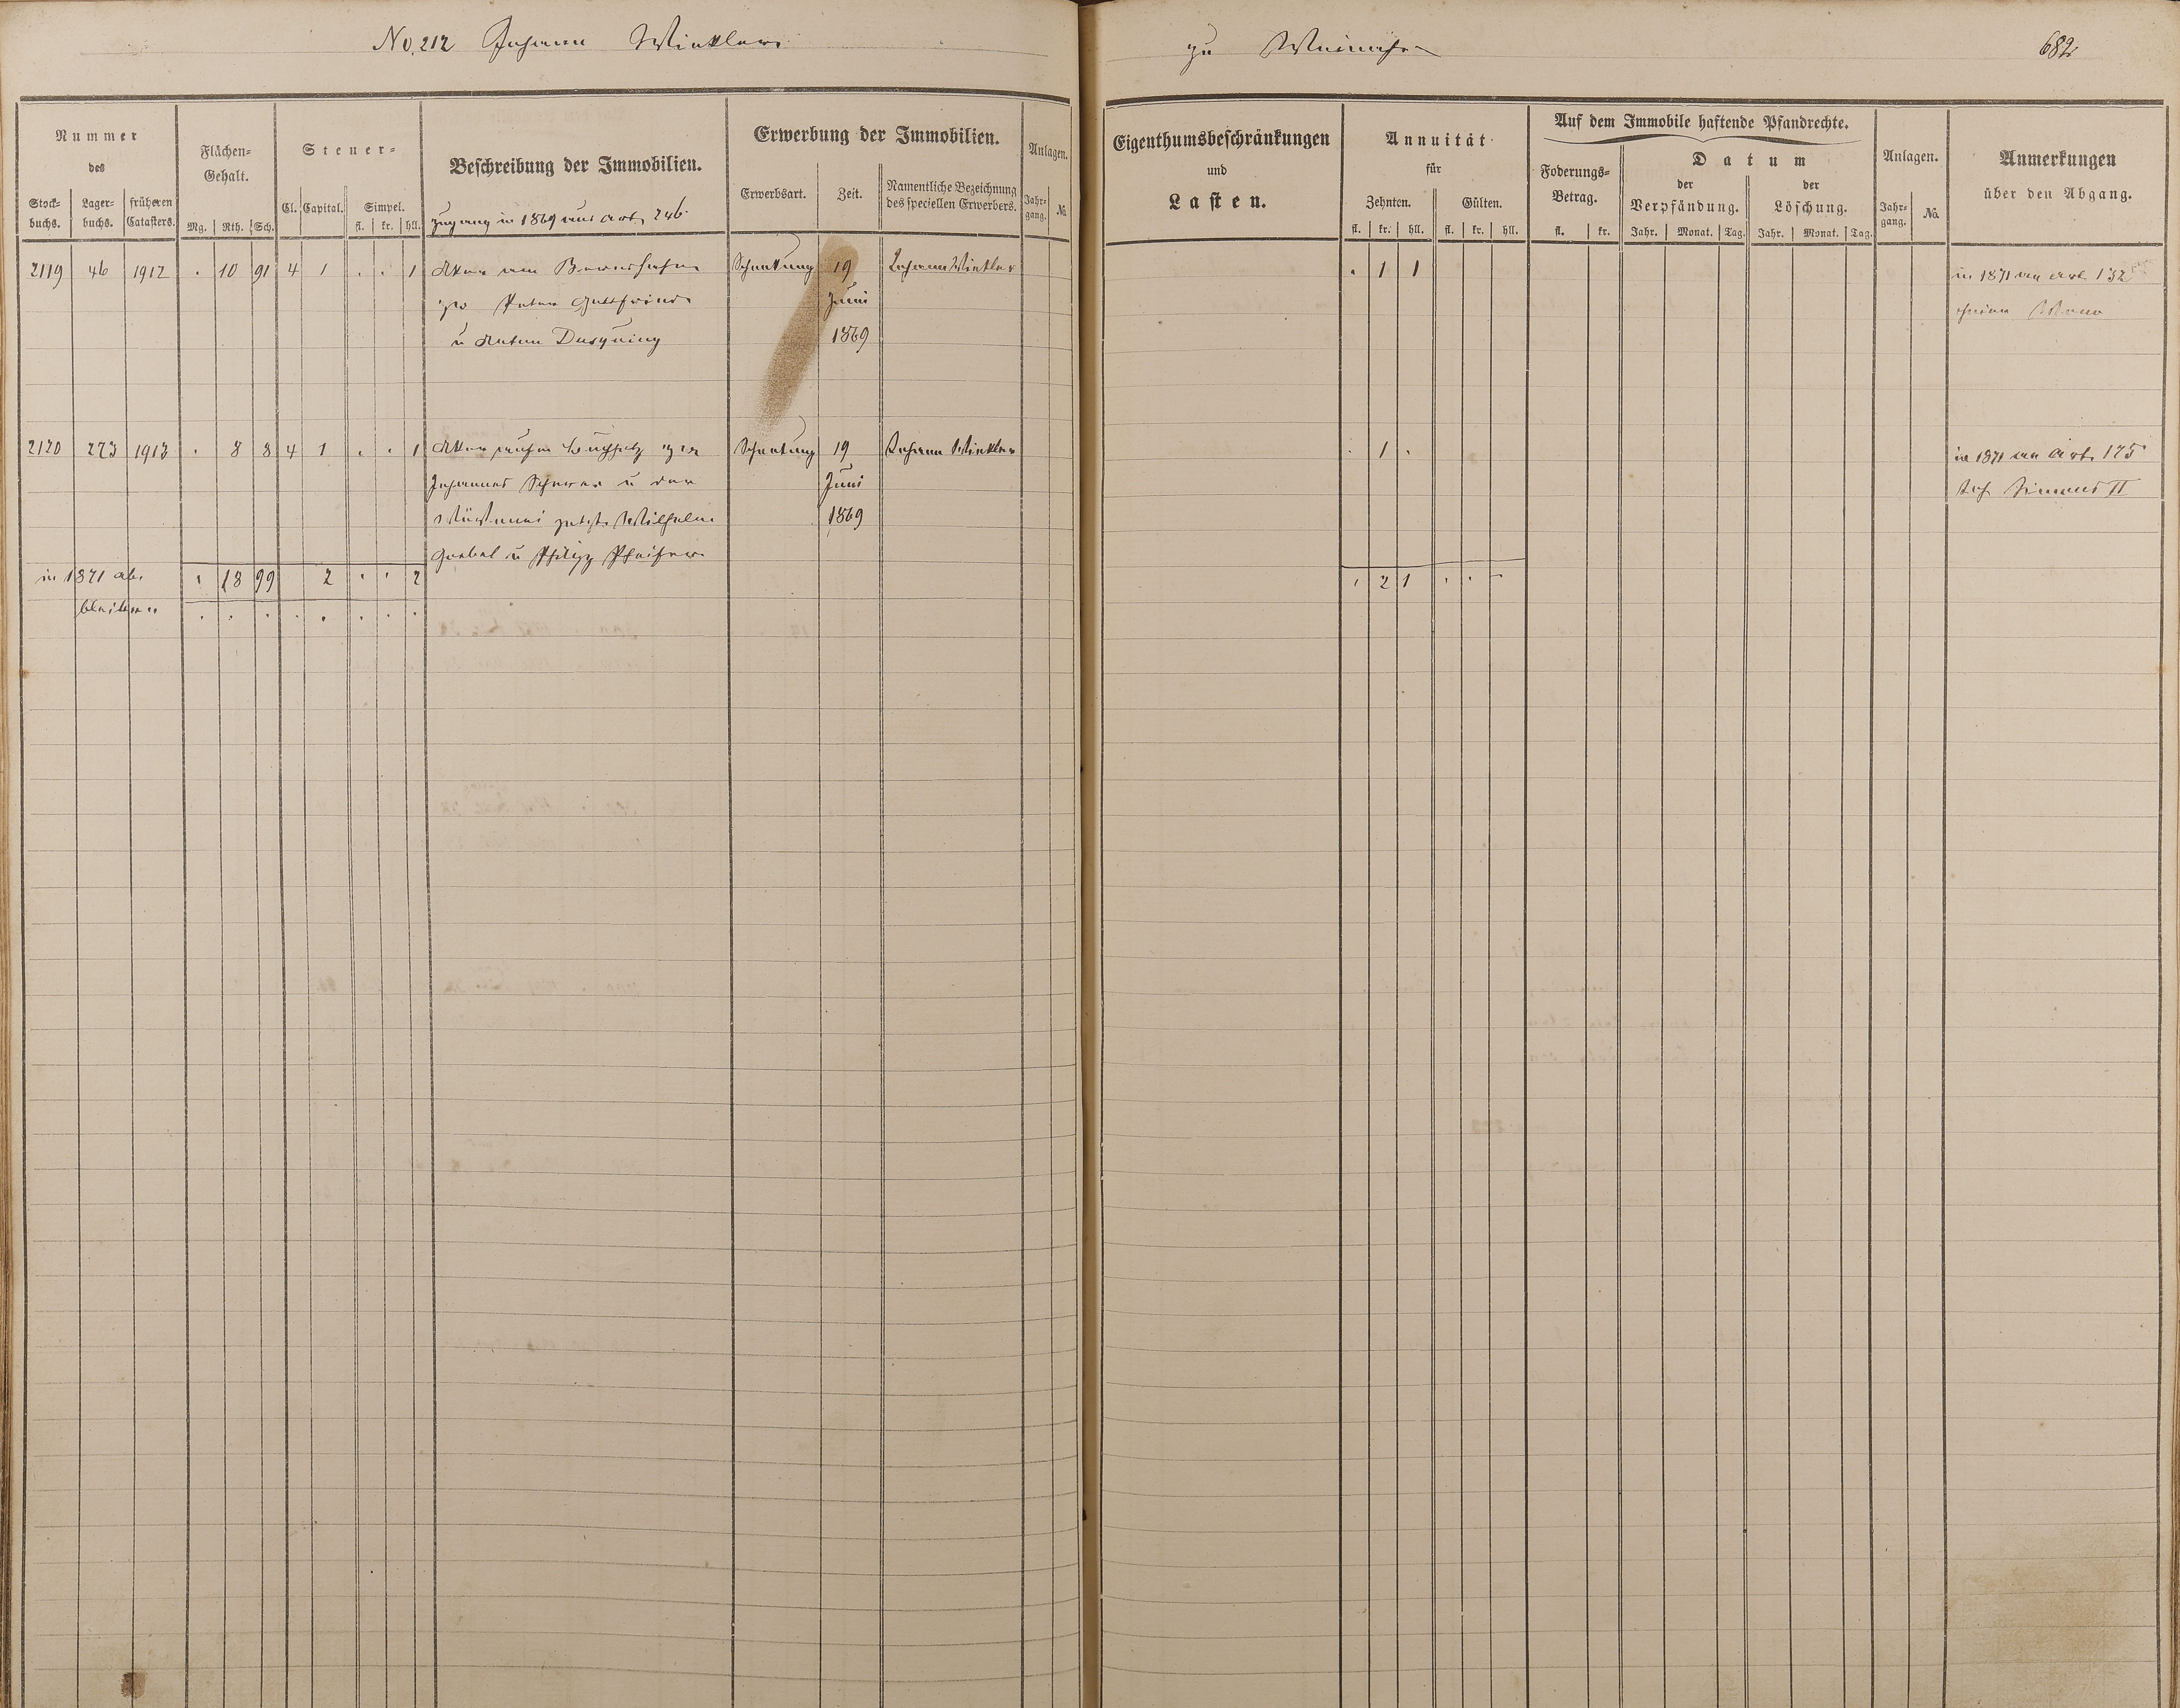 No. 212 Johann Winkler
zu
682
Nummer
des
Stock-
buchs.
Lager-
buchs.
früheren
Catasters.
Flächen-
Gehalt.
Mg. Rth. Sch.
Steuer-
Cl. Capital. Simpel.
fl. kr. hll.
Beschreibung der Immobilien.
Zugang in 1869 aus Art. 246
Erwerbung der Immobilien.
Erwerbsart. Zeit.
Namentliche Bezeichnung
des speciellen Erwerbers.
Anlagen.
Jahr-
gang. No.
Eigenthumsbeschränkungen
und
Lasten.
Annuität
für
Zehnten. Gülten.
fl. kr. hll. fl. kr. hll.
Auf dem Immobile haftende Pfandrechte.
Foderungs-
Betrag.
fl. kr.
Datum
der
Verpfändung.
Jahr. Monat. Tag.
der
Löschung.
Jahr. Monat. Tag.
Anlagen.
Jahr-
gang. No.
Anmerkungen
über den Abgang.
2119 46 1912 . 10 91 4 1 . . 1 Acker am Schenkung 19 Johann Winkler . 1 1 in 1871 an Art. 132
zw Peter Gottfried Juni
u Anton 1869
2120 273 1913 . 8 8 4 1 . . 1 Acker zw Schenkung 19 Johann Winkler . 1 . in 1871 an Art. 175
Johannes u der Juni Joh Simons II
jetzt Wilhelm 1869
Goebel u Philipp Pfeifer
in 1871 ab. . 18 99 2 . . 2 . 2 1 . . -
bleiben . . . . . . . .